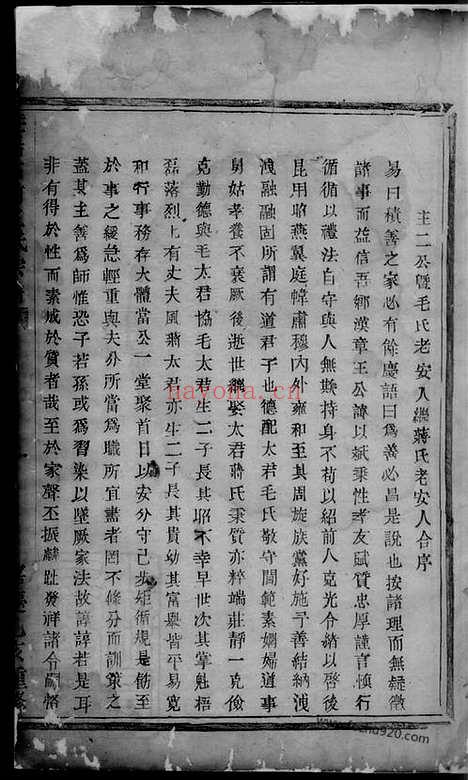 主二公暨毛氏老安人繼蔣氏老安人合序
易曰積善之家必有餘慶語曰為善必昌是說也按諸理而無疑徵
諸事而益信吾鄉漢章王公諱以斌秉性孝友賦質忠厚謹言慎行
循循以禮法自守與人無斯持身不苟以紹前人克光令緒以啓後
昆用昭燕翼庭幃肅穆內外雍和至其周旋族黨好施予善結納洩
洩融融固所謂有道君子也德配太君毛氏敬守閫範素嫻婦道事
舅姑孝養不衰厥後逝世繼娶太君蔣氏秉質亦粹端莊靜一克儉
克勤德與毛太君協毛太君生二子長其昭不幸早世次其掌魁梧
磊落烈烈上有丈夫風蔣太君亦生二子長其貴幼其富與皆平易寬
和行事務存大體當公一堂聚首日以安分守己步矩循規是勖至
於事之緩急輕重與夫分所當為職所宜盡者罔不條分而訓策之
蓋其主善為師惟恐子若孫或為習染以墜厥家法故諄諄若是耳
非有得於性而素成於質者哉至於家聲丕振麟趾發祥諸令嗣
havona.com
fozhu920.com